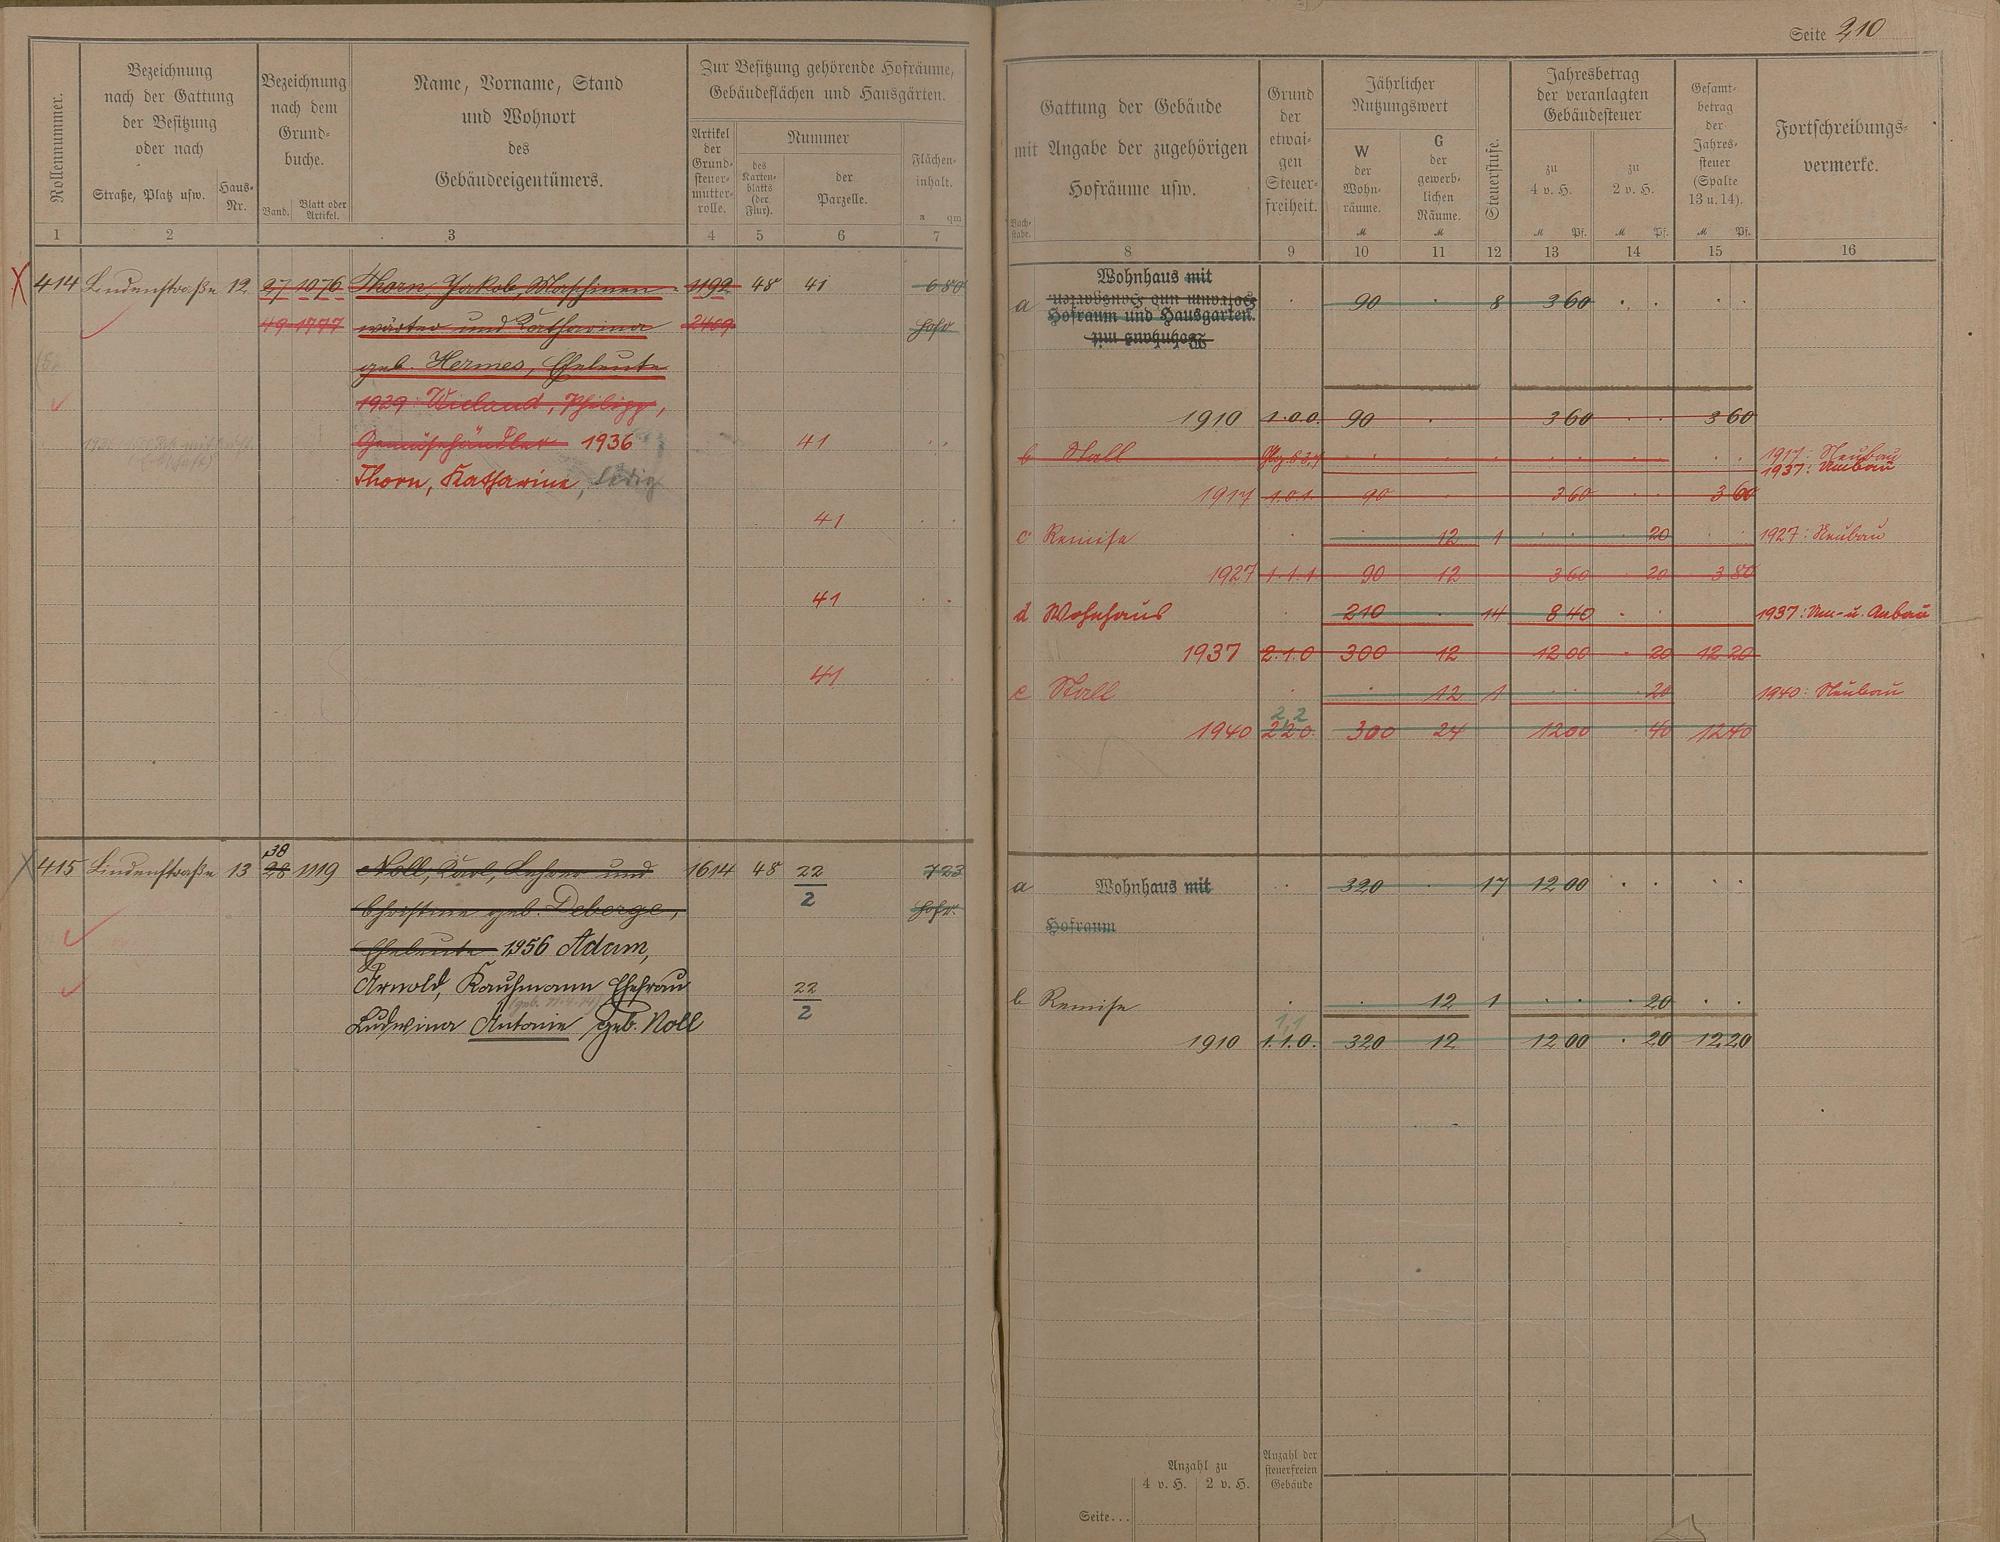 Seite 210
Rollennummer.
Bezeichnung
nach der Gattung
der Besitzung
oder nach
Straße, Platz usw.
Haus-
Nr.
Bezeichnung
nach dem
Grund-
buche.
Band.
Blatt oder
Artikel.
Name, Vorname, Stand
und Wohnort
des
Gebäudeeigentümers.
Zur Besitzung gehörende Hofräume,
Gebäudeflächen und Hausgärten.
Artikel
der
Grund-
steuer-
mutter-
rolle.
Nummer
des
Karten-
blatts
(der
Flur).
der
Parzelle.
Flächen-
inhalt.
a qm
1 2 3 4 5 6 7
Buch-
stabe.
Gattung der Gebäude
mit Angabe der zugehörigen
Hofräume usw.
Grund
der
etwai-
gen
Steuer-
freiheit.
Jährlicher
Nutzungswert
W
der
Wohn-
räume.
M
G
der
gewerb-
lichen
Räume.
M
Steuerstufe.
Jahresbetrag
der veranlagten
Gebäudesteuer
zu
4 v. H.
M Pf.
zu
2 v. H.
M Pf.
Gesamt-
betrag
der
Jahres-
steuer
(Spalte
13 u. 14).
M Pf.
Fortschreibungs-
vermerke.
8 9 10 11 12 13 14 15 16
414 Lindenstraße 12 27 1076 Thorn, Jakob, Maschinen- 1192 48 41 680
49 1777 wärter und Katharina 2409 Hofr
geb. Hermes, Eheleute
1929: Wieland, Philipp,
Gemüsehändler 1936 41
Thorn, Katharine, ledig
41
41
41
a Wohnhaus mit
Hofraum und Hausgarten.
Hofraum und Hausgarten.
Wohnhaus mit
90 8 3 60
1910 1.0.0. 90 3 60 3 60
b Stall 1917: Neubau
1937: Umbau
1917 1.0.1. 90 3 60 3 60
c Remise 12 1 20 1927: Neubau
1927 1.1.1 90 12 3 60 20 3 80
d Wohnhaus 210 14 8 40 1937: Um- u. Anbau
1937 2.1.0 300 12 12 00 20 12 20
e Stall 12 1 20 1940: Neubau
2,2
1940 2.2.0. 300 24 12 00 40 12 40
38
415 Lindenstraße 13 28 1119 Noll, Karl, Lehrer und 1614 48 22/2 723
Christine geb. Deberge, Hofr.
Eheleute 1956 Adam,
Arnold, Kaufmann Ehefrau 22/2
Ludwina Antonie geb. Noll
a Wohnhaus mit 320 17 12 00
Hofraum
b Remise 12 1 20
1,1
1910 1.1.0. 320 12 12 00 20 12 20
Anzahl zu
4 v. H. 2 v. H.
Anzahl der
steuerfreien
Gebäude
Seite...